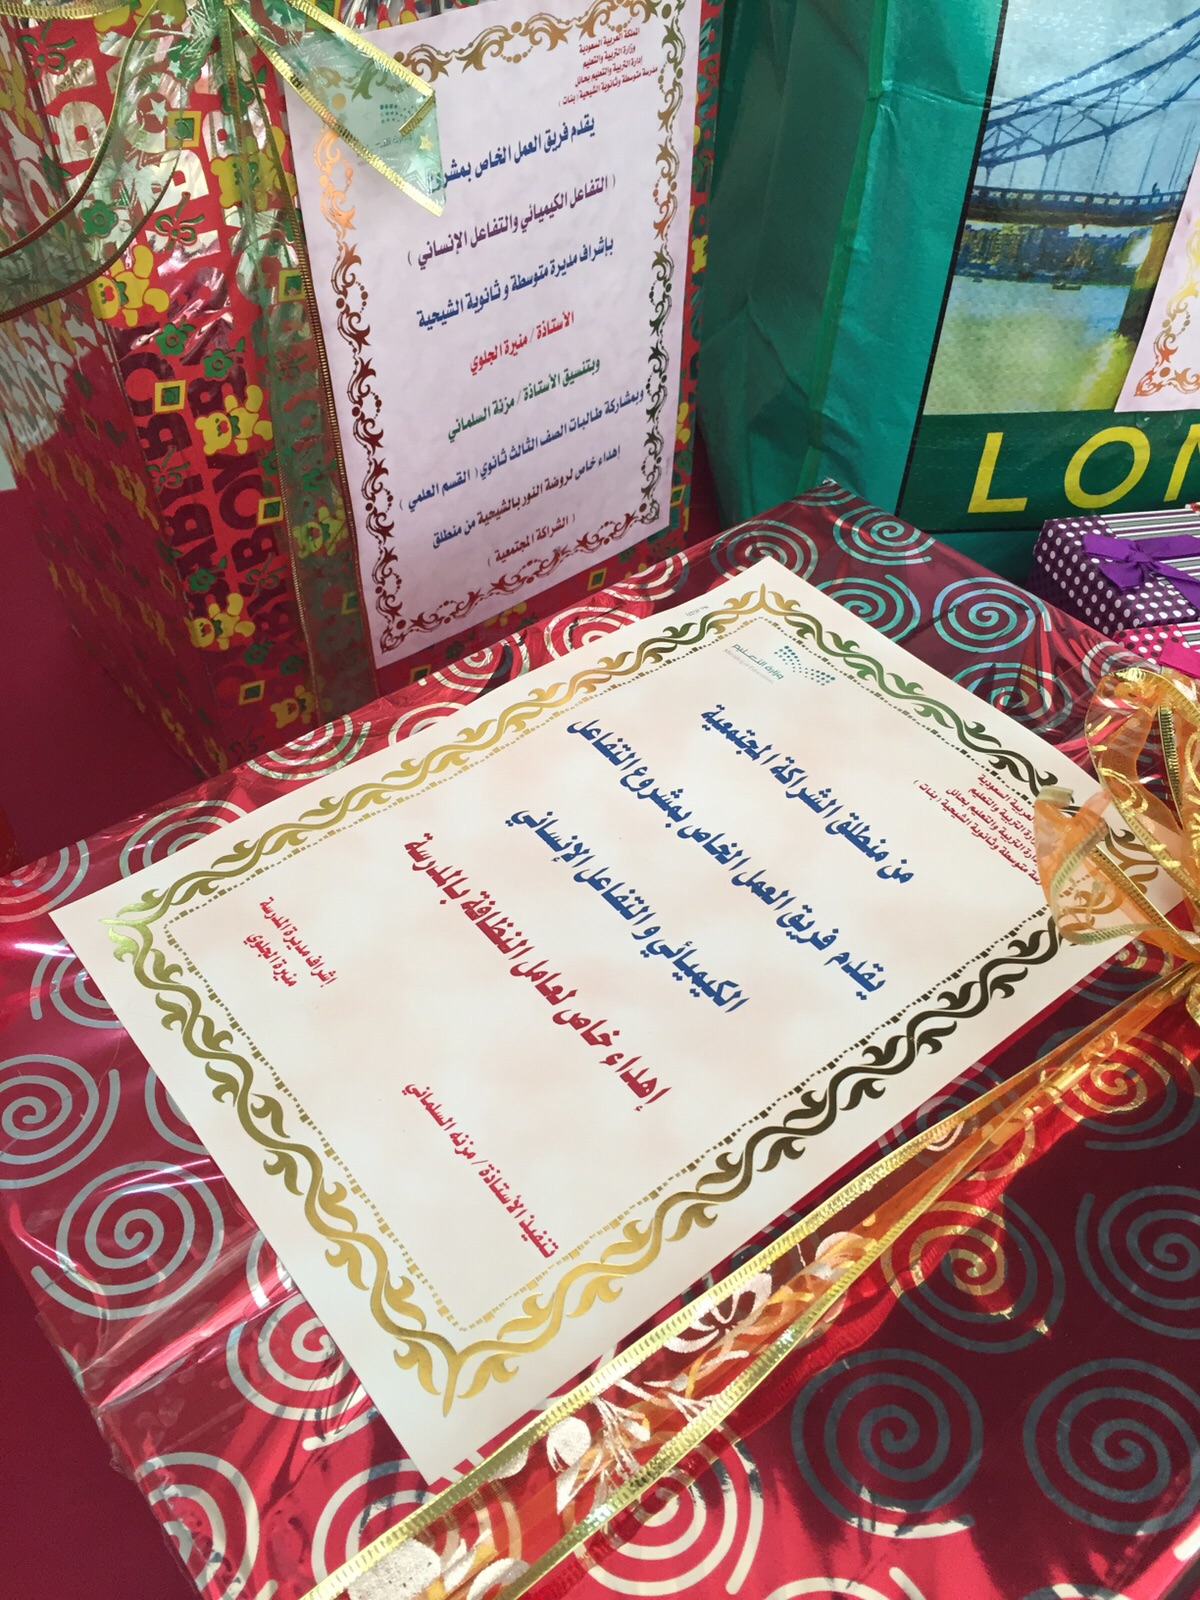 المملكة العربية السعودية
وزارة التربية والتعليم
إدارة التربية والتعليم بحائل
مدرسة متوسطة وثانوية الشيحية ( بنات )
يقدم فريق العمل الخاص
( التفاعل الكيميائي والتفاعل الإنساني )
بإشراف مديرة متوسطة و ثانوية الشيحية
الأستاذة / منيرة الجلوي
وبتنسيق الأستاذة / مزنة السلماني
وبمشاركة طالبات الصف الثالث ثانوي ( القسم العلمي )
إهداء خاص لروضة النور بالشيحية من منطلق
( الشراكة المجتمعية )
LON
وزارة التعليم
Ministry of Education
العربية السعودية
التربية والتعليم
التربية والتعليم بحائل
متوسطة وثانوية الشيحية ( بنات )
من منطلق الشراكة المجتمعية
يقدم فريق العمل الخاص بمشروع التفاعل
الكيميائي والتفاعل الإنساني
إهداء خاص لعامل النظافة بالمدرسة
تنفيذ الأستاذة / مزنه السلماني
إشراف مديرة المدرسة
منيرة الجلوي
BABY BOY